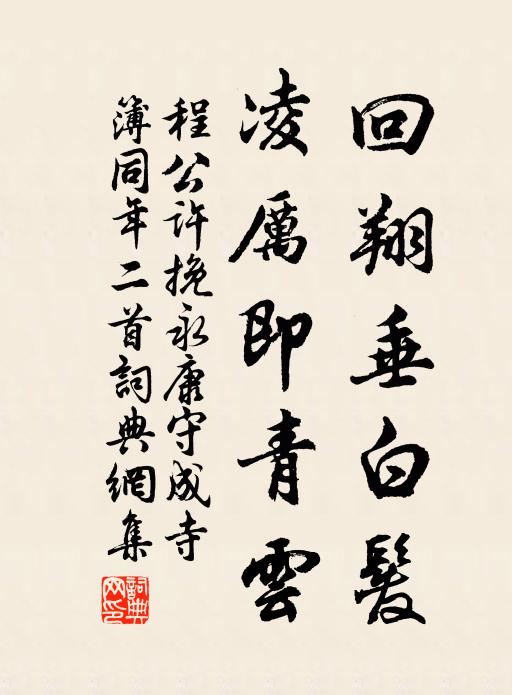 回翔垂白髮
凌厲即青雲
程公許挽永康守成寺
簿同年二首詞典網集
詞典網印